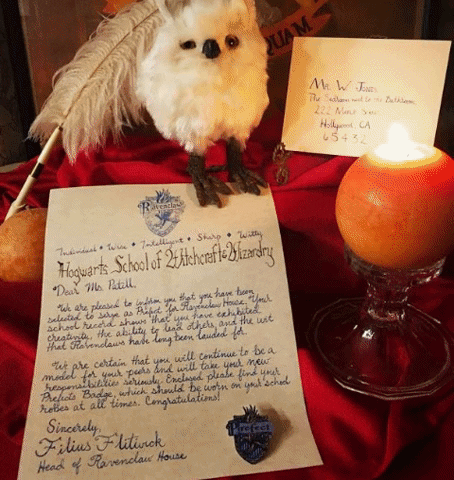 QUAM
Mr. W. Jones
The Bedroom next to the Bathroom
222 Maple Street
Hollywood, CA
65432
Ravenclaw
Individual • Wise • Intelligent • Sharp • Witty
Hogwarts School of Witchcraft & Wizardry
Dear Ms. Patill,
We are pleased to inform you that you have been
selected to serve as Prefect for Ravenclaw House. Your
school record shows that you have exhibited
creativity, the ability to lead others, and the wit
that Ravenclaws have long been lauded for.
We are certain that you will continue to be a
model for your peers and will take your new
responsibilities seriously. Enclosed please find your
Prefects Badge, which should be worn on your school
robes at all times. Congratulations!
Sincerely,
Filius Flitwick
Head of Ravenclaw House
Prefect